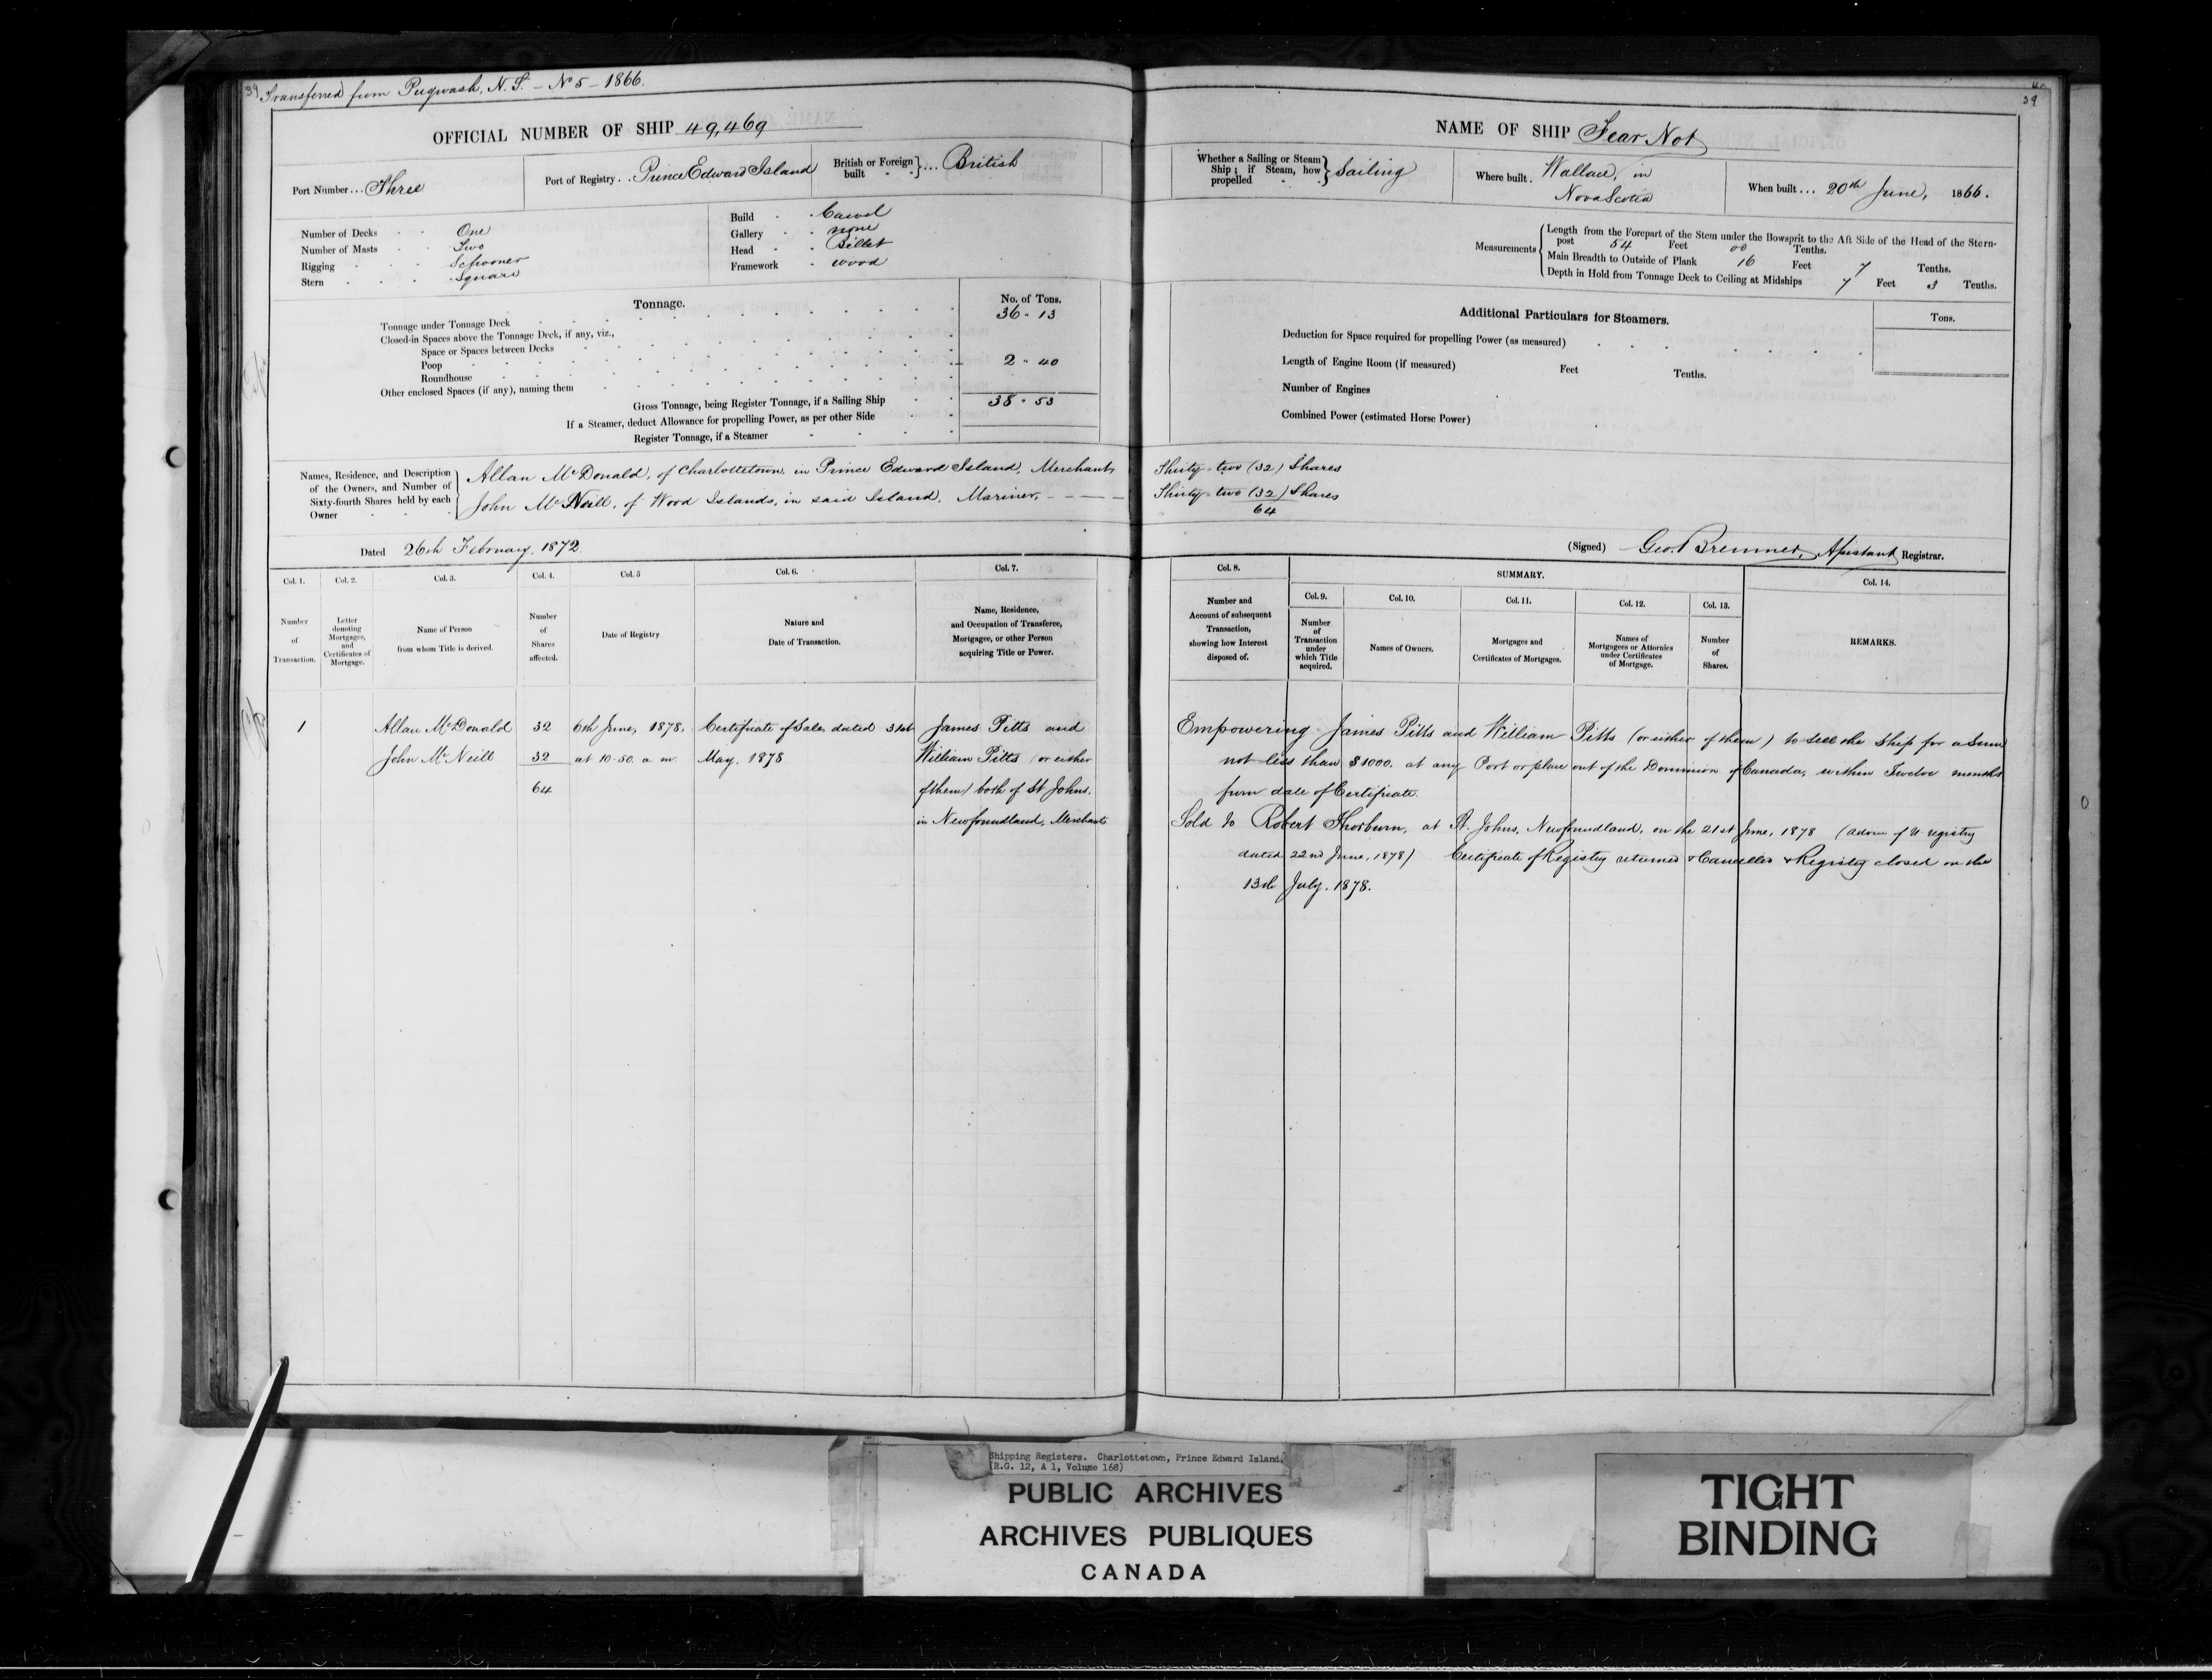 39 Transferred from Pugwash, N.S. – No 5 – 1866.
OFFICIAL NUMBER OF SHIP 49,469
Port Number ... Three
Port of Registry . . Prince Edward Island
British or Foreign built } ... British
Number of Decks One
Number of Masts Two
Rigging Schooner
Stern Square
Build Carvel
Gallery none
Head Billet
Framework wood
Tonnage.
No. of Tons.
Tonnage under Tonnage Deck 36 " 13
Closed-in Spaces above the Tonnage Deck, if any, viz.,
Space or Spaces between Decks
Poop 2 " 40
Roundhouse
Other enclosed Spaces (if any), naming them
Gross Tonnage, being Register Tonnage, if a Sailing Ship 38 " 53
If a Steamer, deduct Allowance for propelling Power, as per other Side
Register Tonnage, if a Steamer
Names, Residence, and Description of the Owners, and Number of Sixty-fourth Shares held by each Owner
Allan McDonald, of Charlottetown, in Prince Edward Island, Merchant
John McNeill, of Wood Islands, in said Island, Mariner, – – – –
Dated 26th February, 1872.
Col. 1. Col. 2. Col. 3. Col. 4. Col. 5 Col. 6. Col. 7.
Number of Transaction.
Letter denoting Mortgages, and Certificates of Mortgage.
Name of Person from whom Title is derived.
Number of Shares affected.
Date of Registry
Nature and Date of Transaction.
Name, Residence, and Occupation of Transferee, Mortgagee, or other Person acquiring Title or Power.
1 Allan McDonald 32 6th June, 1878, Certificate of Sale, dated 31st James Pitts and
John McNeill 32 at 10-50. a. m. May, 1878 William Pitts (or either
64 of them) both of St Johns,
in Newfoundland, Merchants
39
NAME OF SHIP Fear Not
Whether a Sailing or Steam Ship; if Steam, how propelled } Sailing
Where built . Wallace, in
Nova Scotia
When built ... 20th June, 1866.
Measurements
Length from the Forepart of the Stem under the Bowsprit to the Aft Side of the Head of the Stern-
post 54 Feet 00 Tenths.
Main Breadth to Outside of Plank 16 Feet 7 Tenths.
Depth in Hold from Tonnage Deck to Ceiling at Midships 7 Feet 3 Tenths.
Additional Particulars for Steamers.
Tons.
Deduction for Space required for propelling Power (as measured)
Length of Engine Room (if measured) Feet Tenths.
Number of Engines
Combined Power (estimated Horse Power)
Thirty-two (32) Shares
Thirty-two (32) Shares
64
(Signed) Geo. Bremner, Assistant Registrar.
Col. 8. SUMMARY. Col. 14.
Col. 9. Col. 10. Col. 11. Col. 12. Col. 13.
Number and Account of subsequent Transaction, showing how Interest disposed of.
Number of Transaction under which Title acquired.
Names of Owners.
Mortgages and Certificates of Mortgages.
Names of Mortgagees or Attornies under Certificates of Mortgage.
Number of Shares.
REMARKS.
Empowering James Pitts and William Pitts (or either of them) to sell the Ship for a Sum
not less than $1000. at any Port or place out of the Dominion of Canada, within Twelve months
from date of Certificate.
Sold to Robert Thorburn, at St. Johns, Newfoundland, on the 21st June, 1878 (advice of registry
dated 22nd June, 1878) Certificate of Registry returned & Cancelled & Registry closed on the
13th July, 1878.
Shipping Registers. Charlottetown, Prince Edward Island.
(R.G. 12, A 1, Volume 168)
PUBLIC ARCHIVES
ARCHIVES PUBLIQUES
CANADA
TIGHT
BINDING